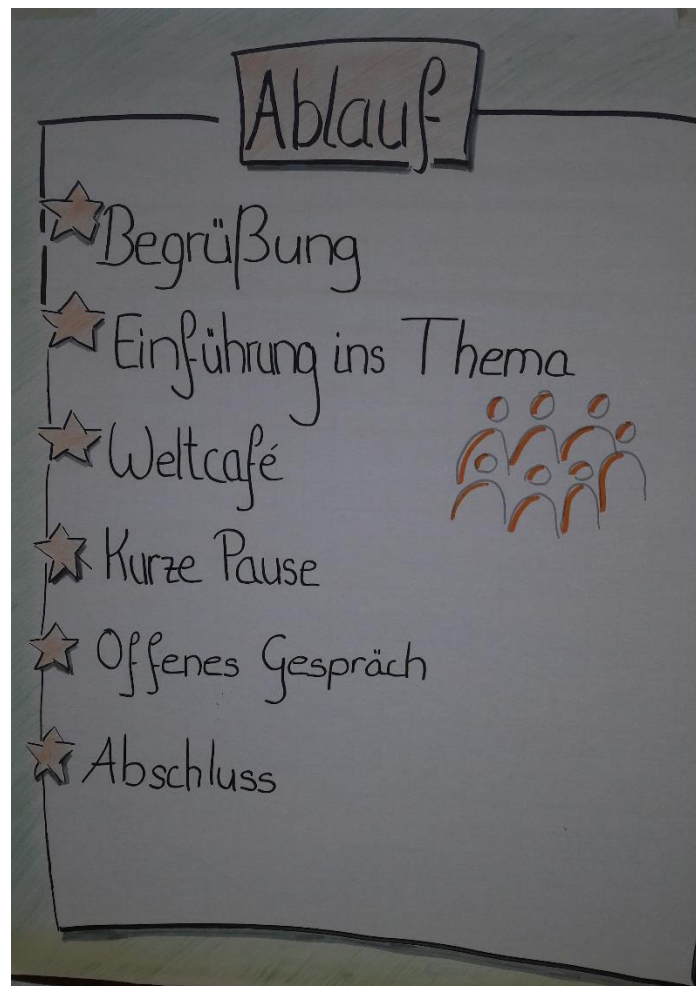 Ablauf
Begrüßung
Einführung ins Thema
Weltcafé
Kurze Pause
Offenes Gespräch
Abschluss